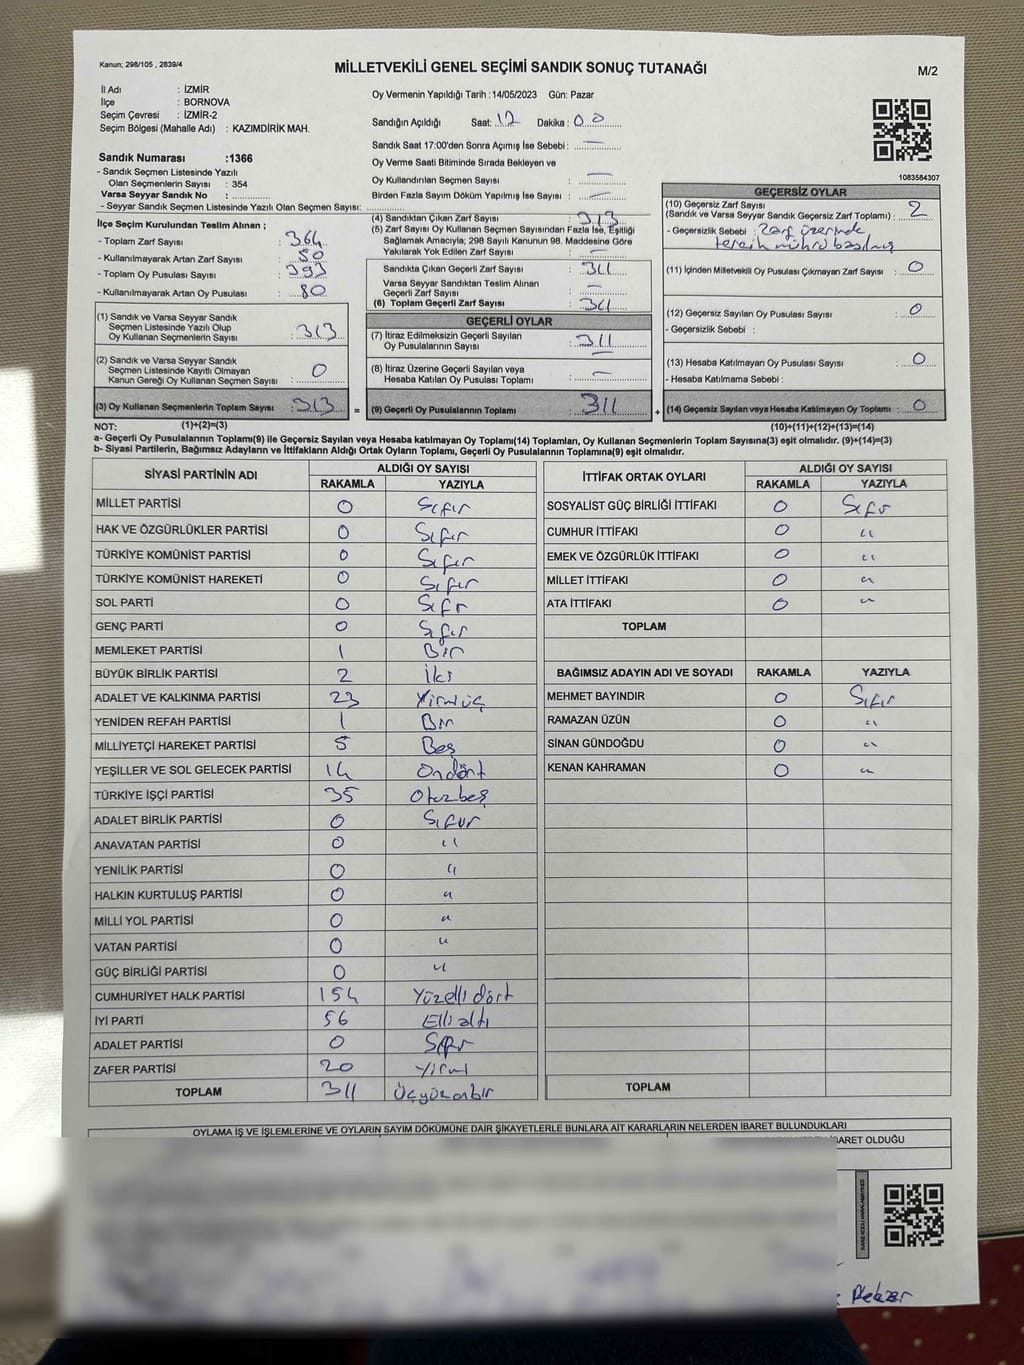 Kanun; 298/105 , 2839/4
MİLLETVEKİLİ GENEL SEÇİMİ SANDIK SONUÇ TUTANAĞI
M/2
İl Adı : İZMİR
İlçe : BORNOVA
Seçim Çevresi : İZMİR-2
Seçim Bölgesi (Mahalle Adı) : KAZIMDİRİK MAH.
Oy Vermenin Yapıldığı Tarih :14/05/2023 Gün: Pazar
Sandığın Açıldığı Saat: 17 Dakika : 00
Sandık Saat 17:00'den Sonra Açımış İse Sebebi : —
Oy Verme Saati Bitiminde Sırada Bekleyen ve
Oy Kullandırılan Seçmen Sayısı : —
Birden Fazla Sayım Döküm Yapılmış İse Sayısı : —
Sandık Numarası :1366
- Sandık Seçmen Listesinde Yazılı
Olan Seçmenlerin Sayısı : 354
Varsa Seyyar Sandık No :
- Seyyar Sandık Seçmen Listesinde Yazılı Olan Seçmen Sayısı:
1083584307
İlçe Seçim Kurulundan Teslim Alınan ;
- Toplam Zarf Sayısı : 364
- Kullanılmayarak Artan Zarf Sayısı : 50
- Toplam Oy Pusulası Sayısı : 393
- Kullanılmayarak Artan Oy Pusulası : 80
(1) Sandık ve Varsa Seyyar Sandık
Seçmen Listesinde Yazılı Olup
Oy Kullanan Seçmenlerin Sayısı : 313
(2) Sandık ve Varsa Seyyar Sandık
Seçmen Listesinde Kayıtlı Olmayan
Kanun Gereği Oy Kullanan Seçmen Sayısı : 0
(3) Oy Kullanan Seçmenlerin Toplam Sayısı : 313 =
(4) Sandıktan Çıkan Zarf Sayısı : 313
(5) Zarf Sayısı Oy Kullanan Seçmen Sayısından Fazla İse, Eşitliği
Sağlamak Amacıyla; 298 Sayılı Kanunun 98. Maddesine Göre
Yakılarak Yok Edilen Zarf Sayısı : —
Sandıkta Çıkan Geçerli Zarf Sayısı : 311
Varsa Seyyar Sandıktan Teslim Alınan
Geçerli Zarf Sayısı : —
(6) Toplam Geçerli Zarf Sayısı : 311
GEÇERLİ OYLAR
(7) İtiraz Edilmeksizin Geçerli Sayılan
Oy Pusulalarının Sayısı : 311
(8) İtiraz Üzerine Geçerli Sayılan veya
Hesaba Katılan Oy Pusulası Toplamı : —
(9) Geçerli Oy Pusulalarının Toplamı : 311 +
GEÇERSİZ OYLAR
(10) Geçersiz Zarf Sayısı
(Sandık ve Varsa Seyyar Sandık Geçersiz Zarf Toplamı) : 2
- Geçersizlik Sebebi : Zarf üzerinde
tercih mührü basılmış
(11) İçinden Milletvekili Oy Pusulası Çıkmayan Zarf Sayısı : 0
(12) Geçersiz Sayılan Oy Pusulası Sayısı : 0
- Geçersizlik Sebebi :
(13) Hesaba Katılmayan Oy Pusulası Sayısı : 0
- Hesaba Katılmama Sebebi :
(14) Geçersiz Sayılan veya Hesaba Katılmayan Oy Toplamı : 0
NOT: (1)+(2)=(3) (10)+(11)+(12)+(13)=(14)
a- Geçerli Oy Pusulalarının Toplamı(9) ile Geçersiz Sayılan veya Hesaba katılmayan Oy Toplamı(14) Toplamları, Oy Kullanan Seçmenlerin Toplam Sayısına(3) eşit olmalıdır. (9)+(14)=(3)
b- Siyasi Partilerin, Bağımsız Adayların ve İttifakların Aldığı Ortak Oyların Toplamı, Geçerli Oy Pusulalarının Toplamına(9) eşit olmalıdır.
SİYASİ PARTİNİN ADI ALDIĞI OY SAYISI
RAKAMLA YAZIYLA
MİLLET PARTİSİ 0 Sıfır
HAK VE ÖZGÜRLÜKLER PARTİSİ 0 Sıfır
TÜRKİYE KOMÜNİST PARTİSİ 0 Sıfır
TÜRKİYE KOMÜNİST HAREKETİ 0 Sıfır
SOL PARTİ 0 Sıfır
GENÇ PARTİ 0 Sıfır
MEMLEKET PARTİSİ 1 Bir
BÜYÜK BİRLİK PARTİSİ 2 İki
ADALET VE KALKINMA PARTİSİ 23 Yirmiüç
YENİDEN REFAH PARTİSİ 1 Bir
MİLLİYETÇİ HAREKET PARTİSİ 5 Beş
YEŞİLLER VE SOL GELECEK PARTİSİ 14 Ondört
TÜRKİYE İŞÇİ PARTİSİ 35 Otuzbeş
ADALET BİRLİK PARTİSİ 0 Sıfır
ANAVATAN PARTİSİ 0 "
YENİLİK PARTİSİ 0 "
HALKIN KURTULUŞ PARTİSİ 0 "
MİLLİ YOL PARTİSİ 0 "
VATAN PARTİSİ 0 "
GÜÇ BİRLİĞİ PARTİSİ 0 "
CUMHURİYET HALK PARTİSİ 154 Yüzellidört
İYİ PARTİ 56 Ellialtı
ADALET PARTİSİ 0 Sıfır
ZAFER PARTİSİ 20 Yirmi
TOPLAM 311 Üçyüzonbir
İTTİFAK ORTAK OYLARI ALDIĞI OY SAYISI
RAKAMLA YAZIYLA
SOSYALİST GÜÇ BİRLİĞİ İTTİFAKI 0 Sıfır
CUMHUR İTTİFAKI 0 "
EMEK VE ÖZGÜRLÜK İTTİFAKI 0 "
MİLLET İTTİFAKI 0 "
ATA İTTİFAKI 0 "
TOPLAM
BAĞIMSIZ ADAYIN ADI VE SOYADI RAKAMLA YAZIYLA
MEHMET BAYINDIR 0 Sıfır
RAMAZAN ÜZÜN 0 "
SİNAN GÜNDOĞDU 0 "
KENAN KAHRAMAN 0 "
TOPLAM
OYLAMA İŞ VE İŞLEMLERİNE VE OYLARIN SAYIM DÖKÜMÜNE DAİR ŞİKAYETLERLE BUNLARA AİT KARARLARIN NELERDEN İBARET BULUNDUKLARI
İBARET OLDUĞU